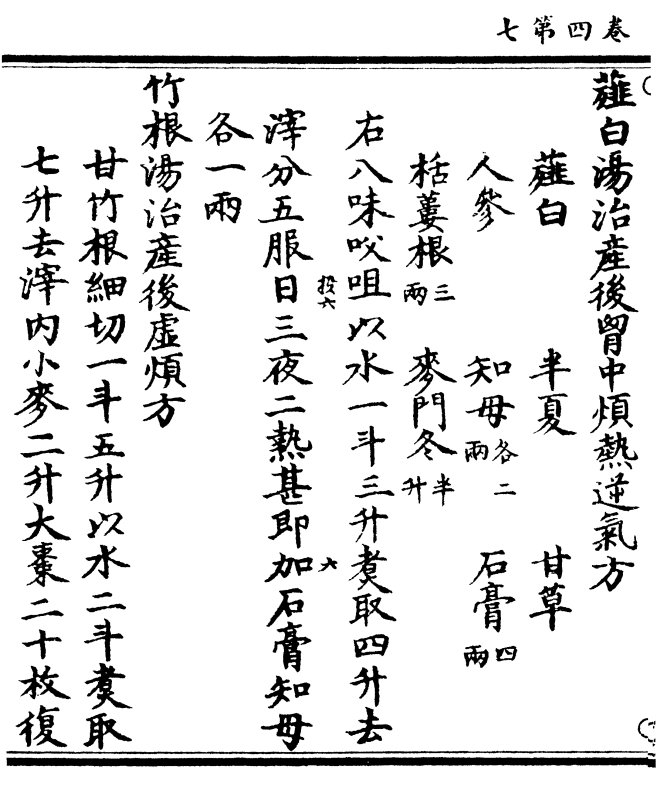 卷四第七
薤白湯治産後胷中煩熱逆氣方
薤白　半夏　甘草
人參　知母各二兩　石膏四兩
栝蔞根三兩　麥門冬半升
右八味㕮咀以水一斗三升煑取四升去
滓分五服日三夜二熱甚即加石膏知母
各一兩
竹根湯治産後虛煩方
甘竹根細切一斗五升以水二斗煑取
七升去滓内小麥二升大棗二十枚復